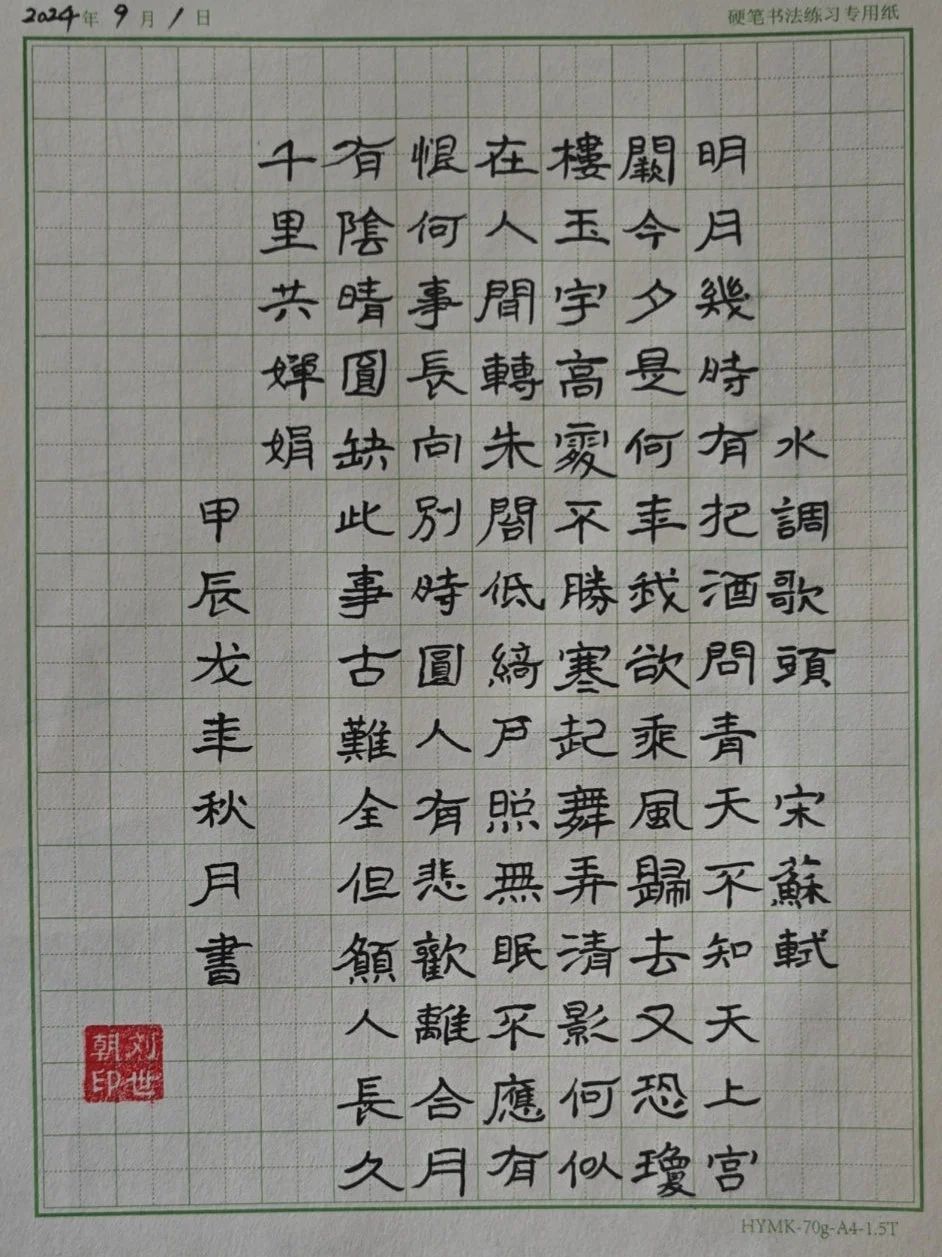 2024年9月1日
硬笔书法练习专用纸
水調歌頭 宋蘇軾
明月幾時有把酒問青天不知天上宫
闕今夕是何年我欲乘風歸去又恐瓊
樓玉宇高處不勝寒起舞弄清影何似
在人間轉朱閣低綺戶照無眠不應有
恨何事長向別時圓人有悲歡離合月
有陰晴圓缺此事古難全但願人長久
千里共嬋娟
甲辰龙年秋月書
刘世
朝印
HYMK-70g-A4-1.5T